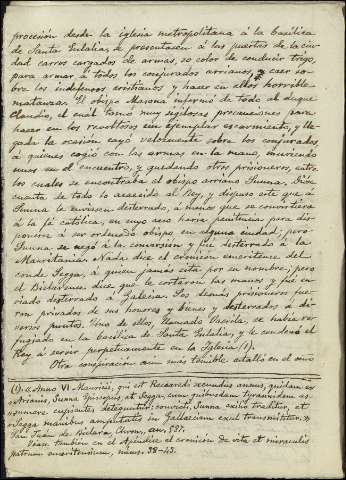 procesión desde la iglesia metropolitana á la basílica
de Santa Eulalia, se presentasen á las puertas de la ciu-
dad carros cargados de armas, so color de conducir trigo,
para armar á todos los conjurados arrianos, y caer so-
bre los indefensos cristianos y hacer en ellos horrible
matanza. El obispo Masona informó de todo al duque
Claudio, el cual tomó muy sigilosas precauciones para
hacer en los revoltosos un ejemplar escarmiento, y lle-
gada la ocasión cayó velozmente sobre los conjurados,
á quienes cogió con las armas en la mano, muriendo
unos en el encuentro, y quedando otros prisioneros, entre
los cuales se encontraba el obispo arriano Sunna. Dióse
cuenta de todo lo acaecido al Rey, y dispuso este que á
Sunna le enviasen desterrado, á menos que se convirtiera
á la fé católica, en cuyo caso haría penitencia para dis-
ponerse á ser ordenado obispo en alguna ciudad; pero
Sunna se negó á la conversión y fué desterrado á la
Mauritania. Nada dice el cronicon emeritense del
conde Segga, á quien jamás cita por su nombre; pero
el Biclarense dice que le cortaron las manos y fué en-
viado desterrado á Galicia. Los demás prisioneros fue-
ron privados de sus honores y bienes y desterrados á di-
versos puntos. Uno de ellos, llamado Vacrila, se había re-
fugiado en la basílica de Santa Eulalia, y le condenó el
Rey á servir perpetuamente en la Iglesia (1).
Otra conspiración aun más temible estalló en el año
(1) « Anno VI Mauricii, qui est Recaredi secundus annus, quidam ex
Arianis, Sunna Episcopus, et Segga, cum quibusdam tyrannidem as-
sumere cupientes deteguntur; convicti, Sunna exilio traditur, et
Segga manibus amputatis in Gallaeciam exul transmittitur.»
San Juan de Biclara, Chron., an. 587.
Véase tambien en el Apéndice el cronicon de vita et miraculis
patrum emeritensium, núms. 38-43.